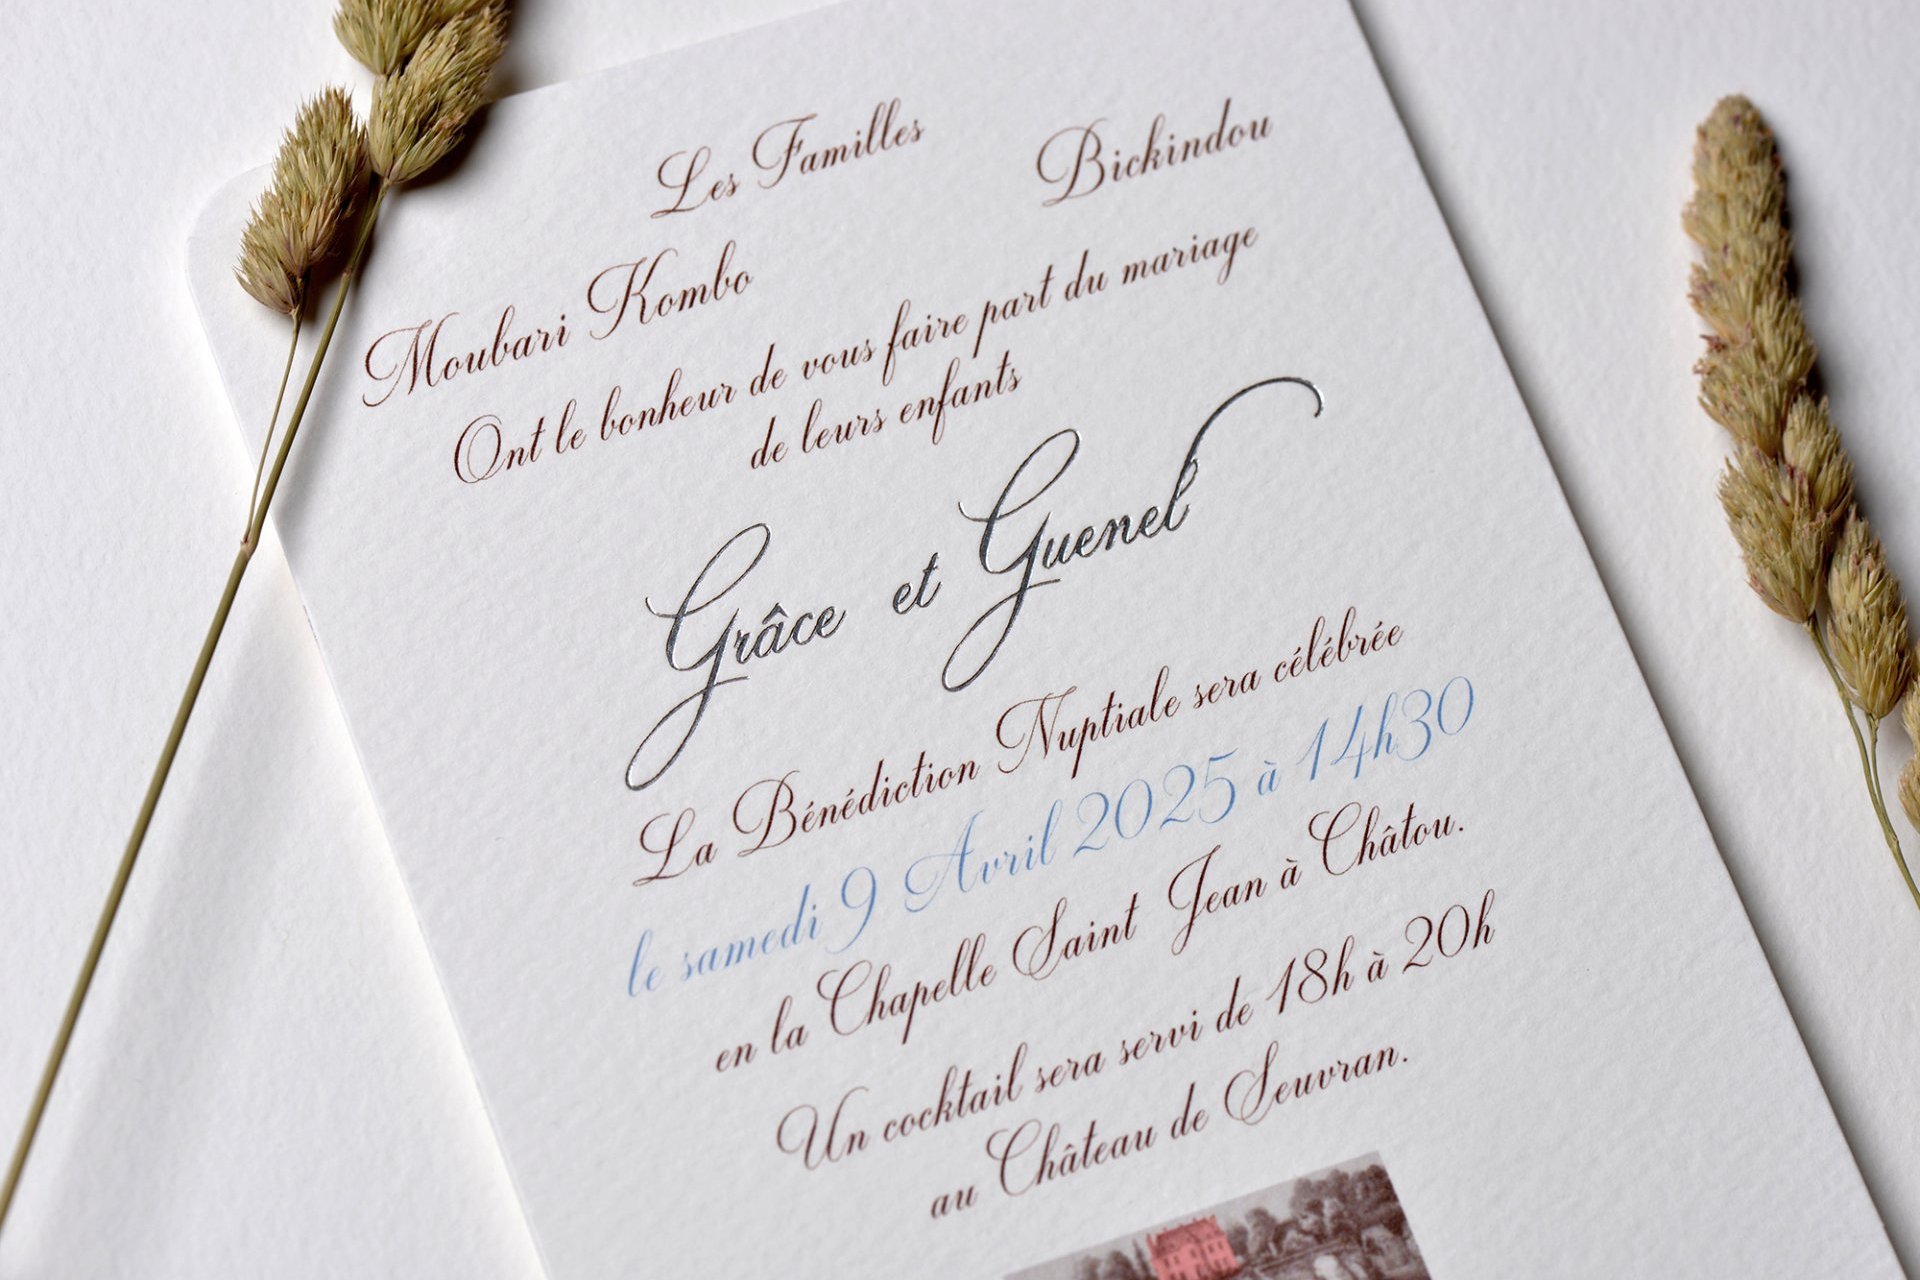 Les Familles
Moubari Kombo Bickindou
Ont le bonheur de vous faire part du mariage
de leurs enfants
Grâce et Guenel
La Bénédiction Nuptiale sera célébrée
le samedi 9 Avril 2025 à 14h30
en la Chapelle Saint Jean à Châtou.
Un cocktail sera servi de 18h à 20h
au Château de Seuvran.